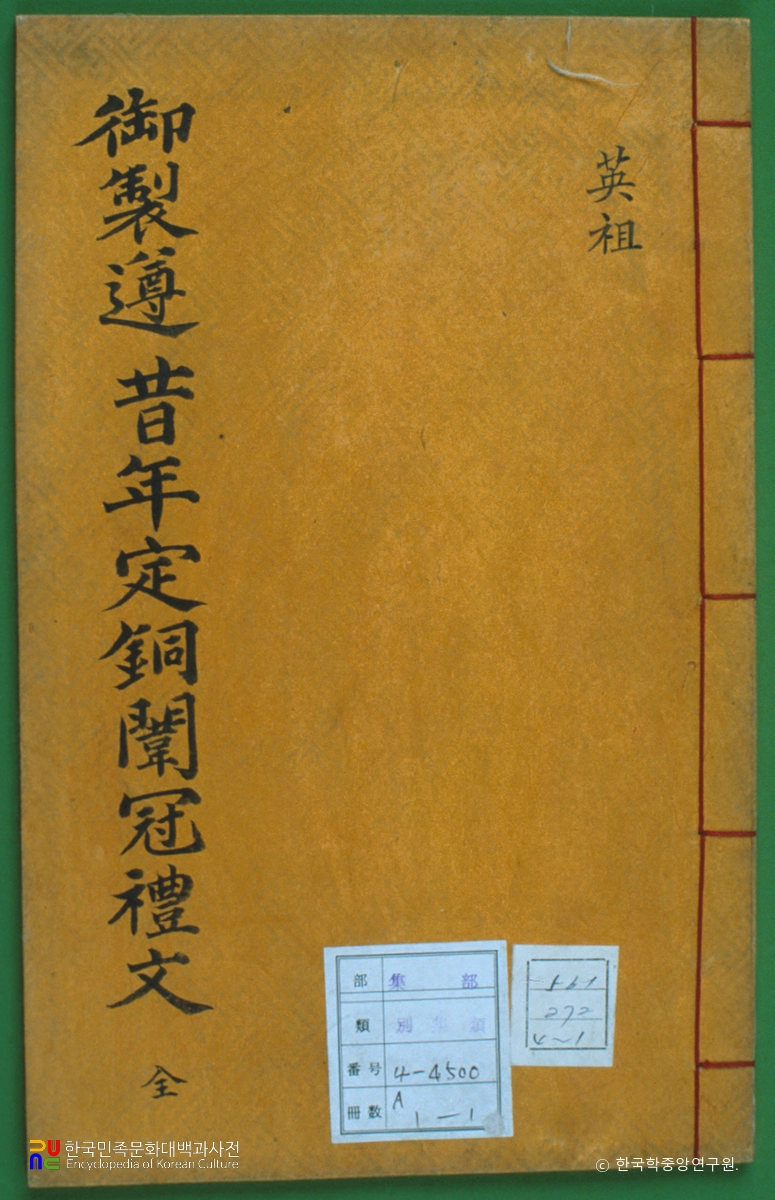 英祖
御製遵昔年定銅闈冠禮文 全
部 集部
類 別集類
番号 4-4500
冊數 A 1-1
272
4~1
한국민족문화대백과사전
Encyclopedia of Korean Culture
© 한국학중앙연구원.